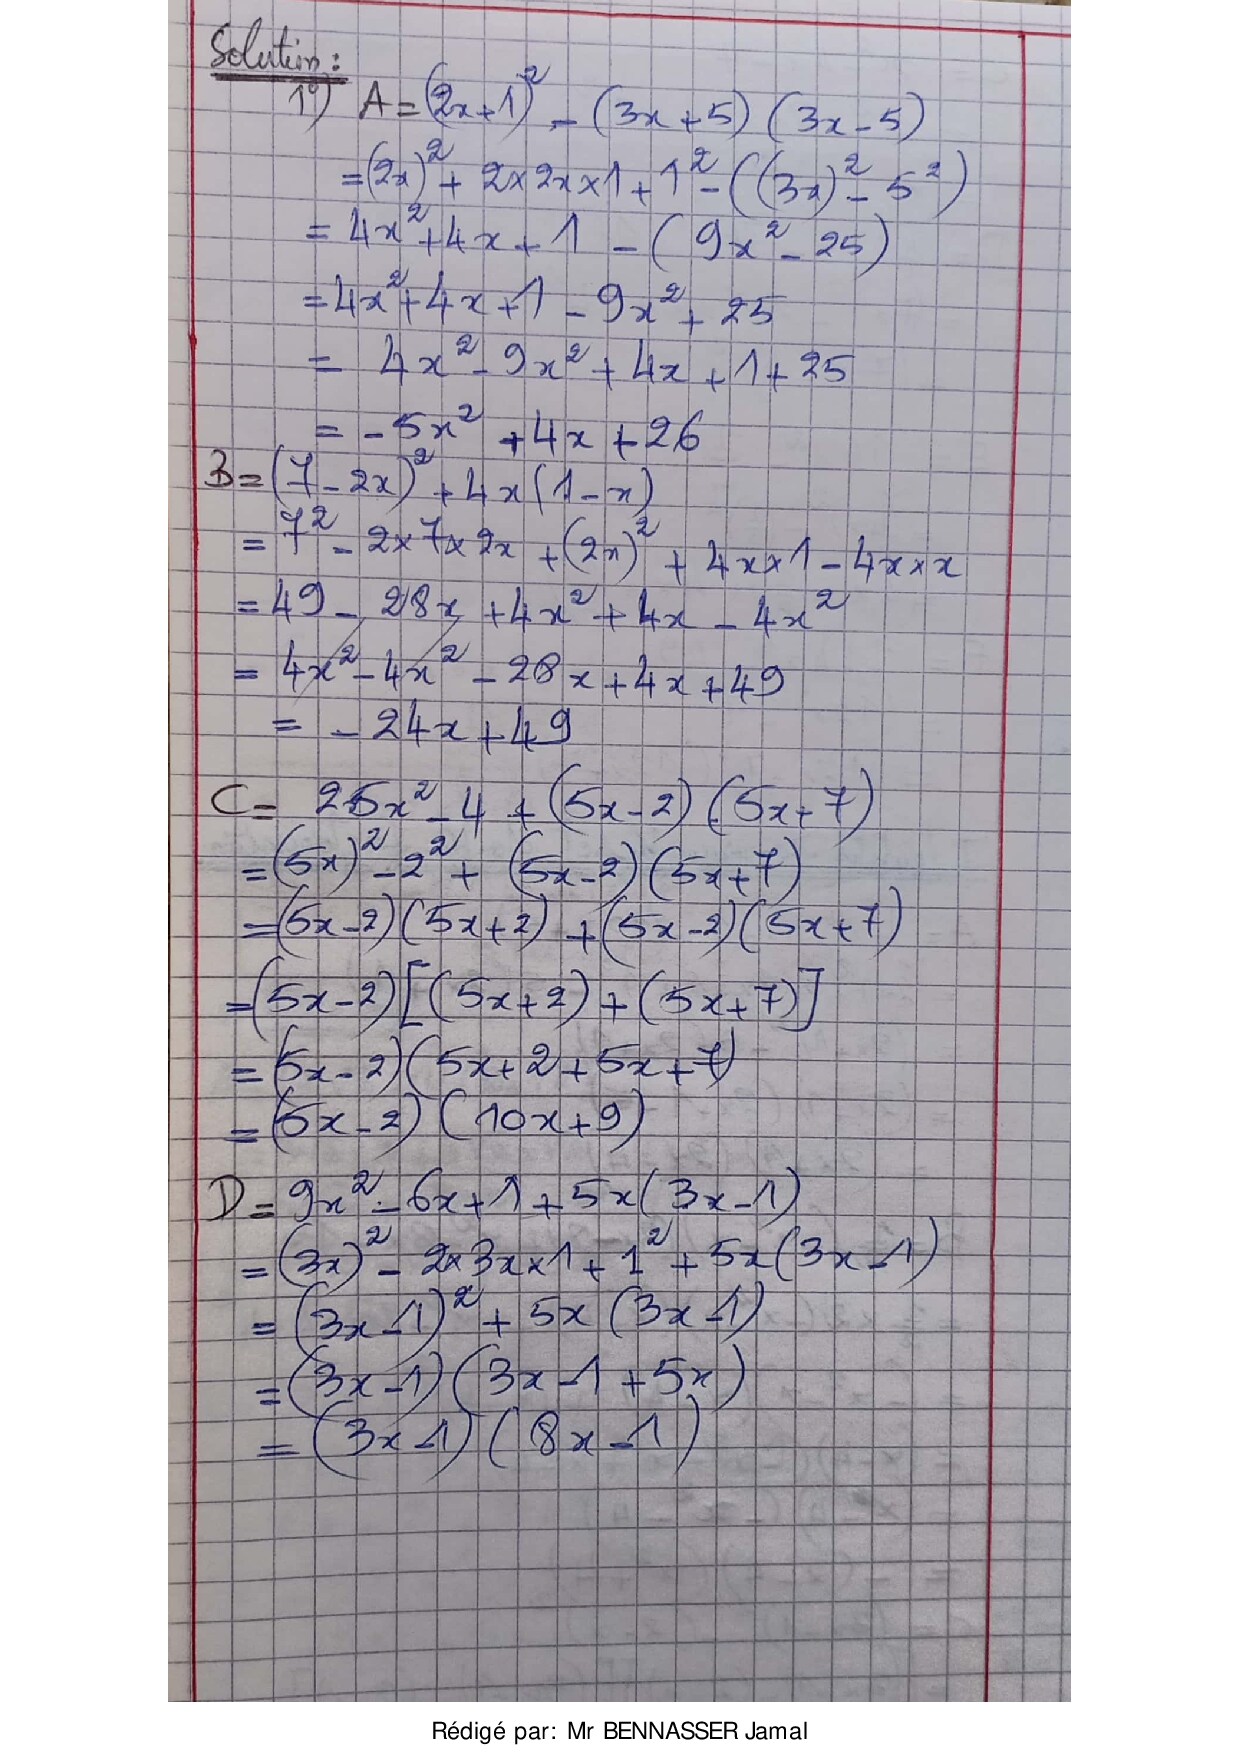 Solution :
1°) A = (2x+1)² - (3x+5) (3x-5)
= (2x)² + 2×2x×1 + 1² - ((3x)² - 5²)
= 4x² + 4x + 1 - (9x² - 25)
= 4x² + 4x + 1 - 9x² + 25
= 4x² - 9x² + 4x + 1 + 25
= -5x² + 4x + 26
B = (7-2x)² + 4x(1-x)
= 7² - 2×7×2x + (2x)² + 4x×1 - 4x×x
= 49 - 28x + 4x² + 4x - 4x²
= 4x² - 4x² - 28x + 4x + 49
= -24x + 49
C = 25x² - 4 + (5x-2) (5x+7)
= (5x)² - 2² + (5x-2) (5x+7)
= (5x-2) (5x+2) + (5x-2) (5x+7)
= (5x-2) [(5x+2) + (5x+7)]
= (5x-2) (5x+2+5x+7)
= (5x-2) (10x+9)
D = 9x² - 6x + 1 + 5x(3x-1)
= (3x)² - 2×3x×1 + 1² + 5x(3x-1)
= (3x-1)² + 5x (3x-1)
= (3x-1) (3x-1+5x)
= (3x-1) (8x-1)
Rédigé par: Mr BENNASSER Jamal